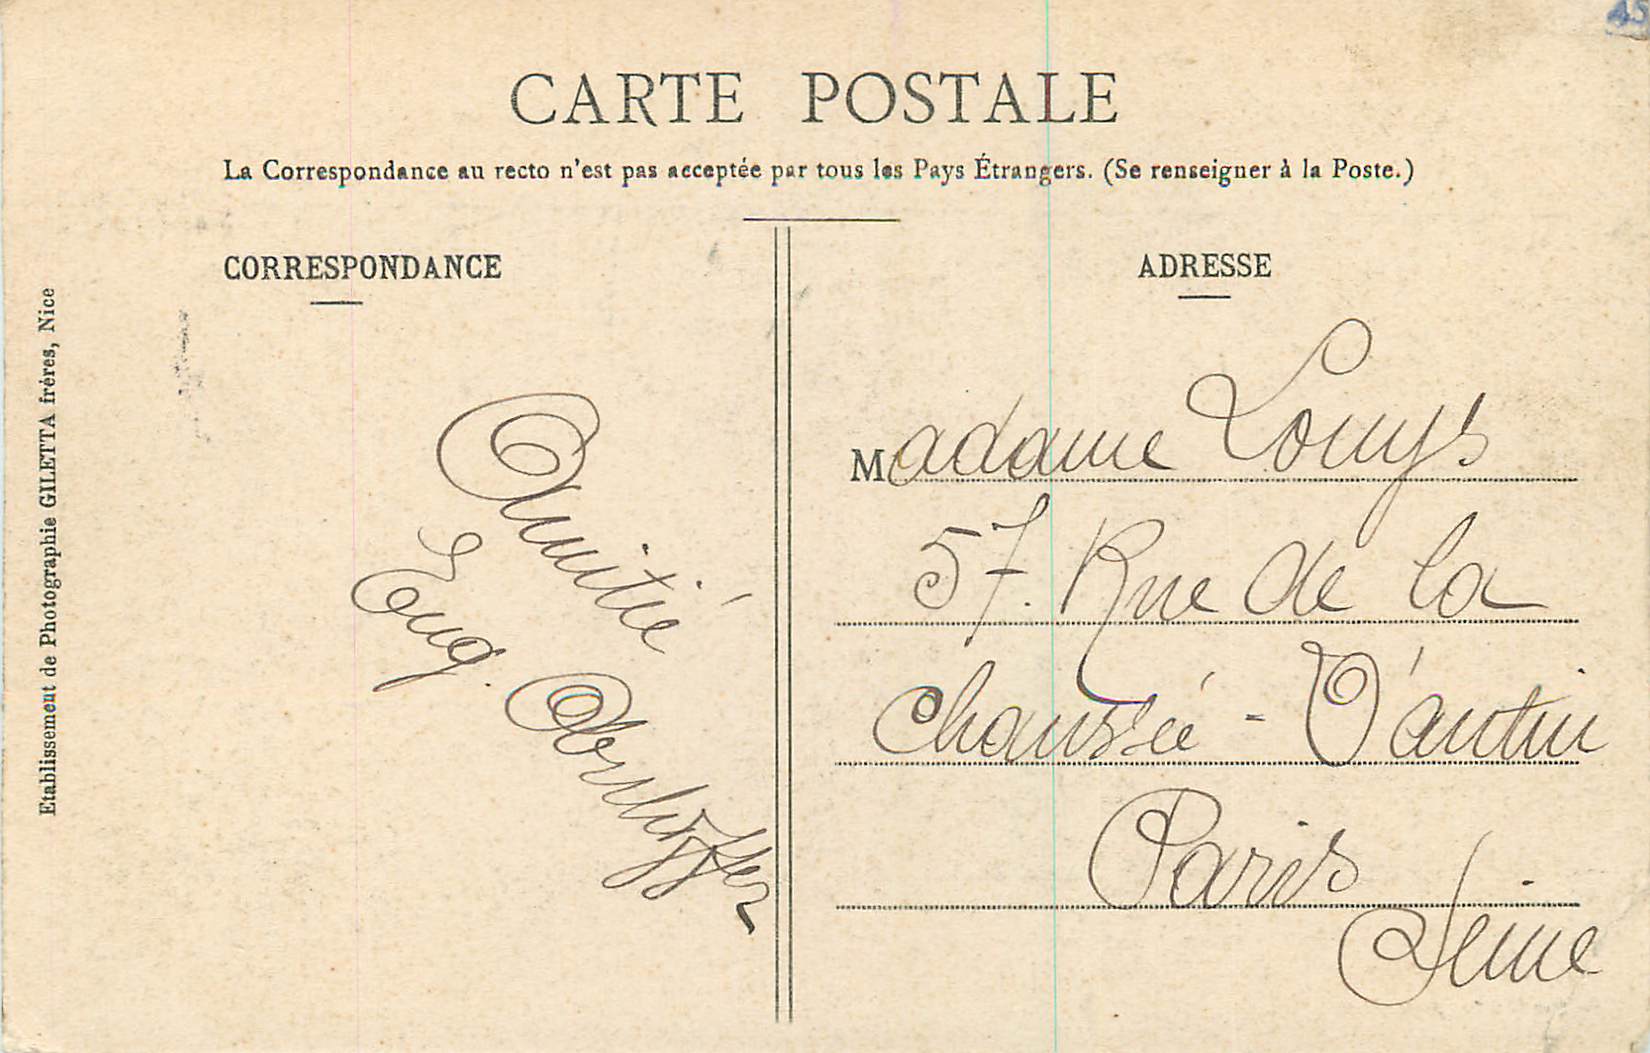 45
CARTE POSTALE
La Correspondance au recto n'est pas acceptée par tous les Pays Étrangers. (Se renseigner à la Poste.)
CORRESPONDANCE
Amitié
Eug.
ADRESSE
Madame Louys
57. Rue de la
Chaussée - D'antin
Paris
Seine
Etablissement de Photographie GILETTA frères, Nice